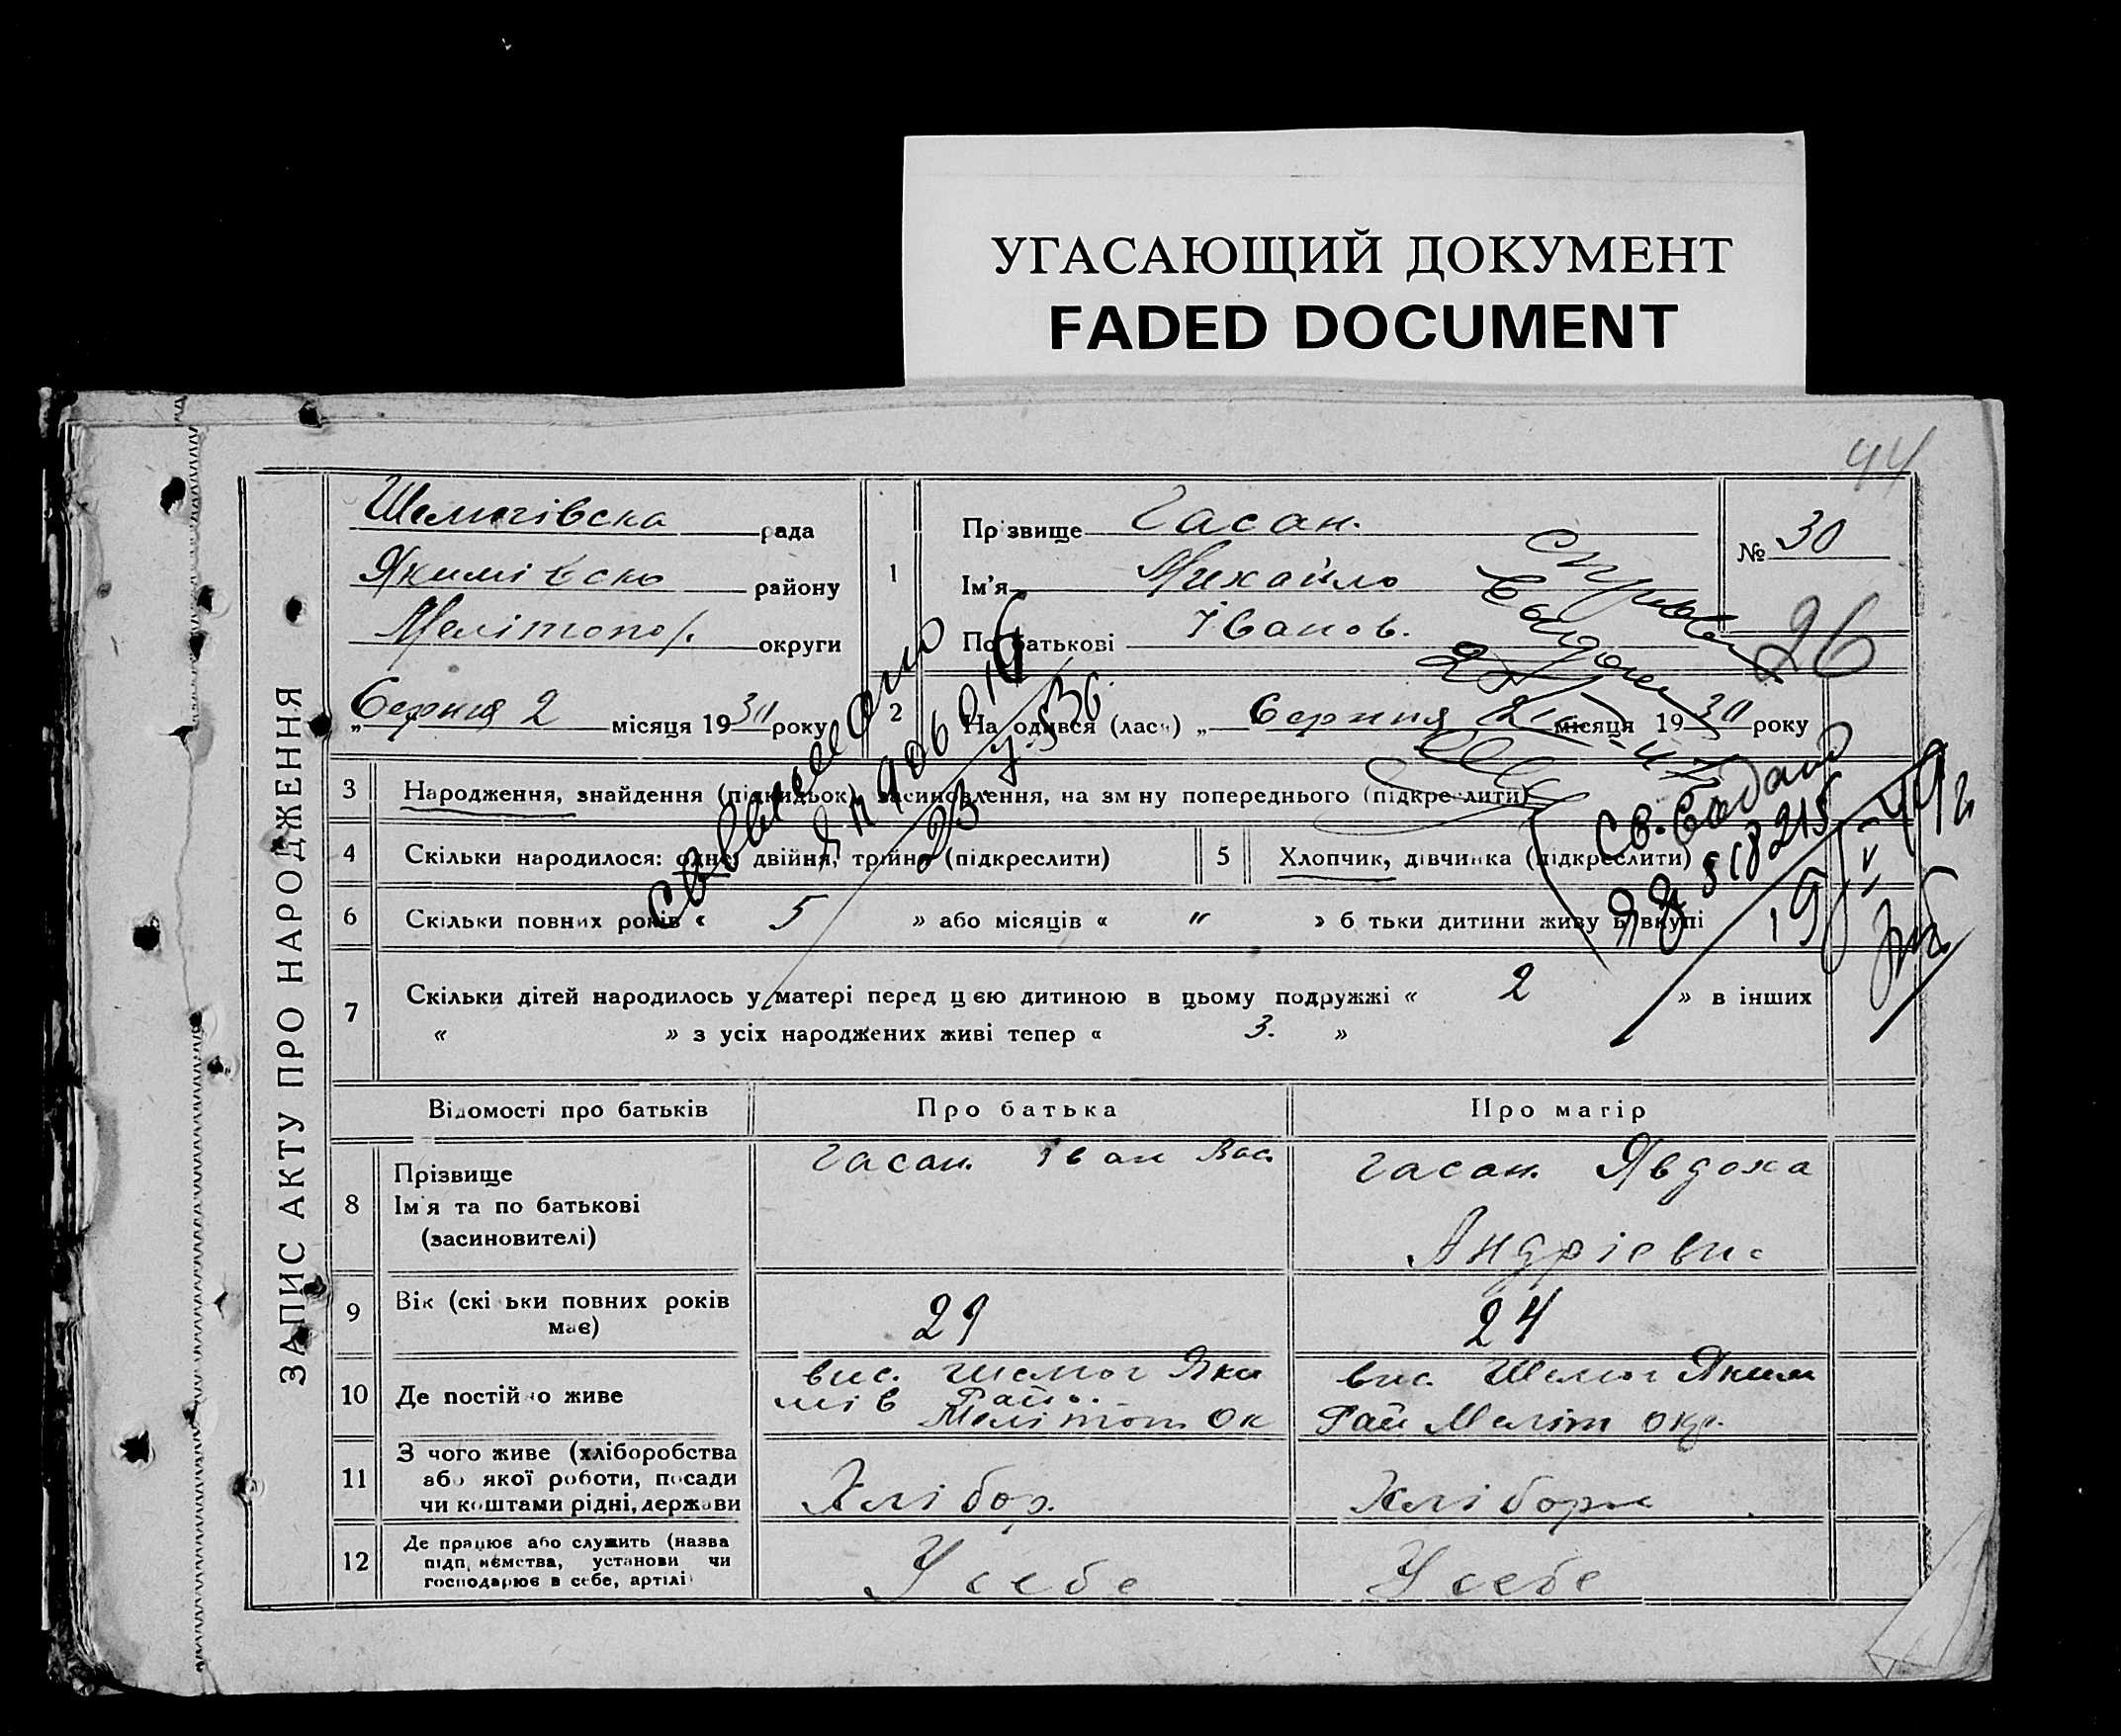 УГАСАЮЩИЙ ДОКУМЕНТ
FADED DOCUMENT
44
ЗАПИС АКТУ ПРО НАРОДЖЕННЯ
Шелюгівска рада
Якимівско району
Мелітопол. округи
1
Прізвище Гасан.
Ім'я Михайло
По батькові Іванов.
№ 30
26
„ Серпня 2 місяця 1930 року
2
На одився (лась) „ Серпня 2 місяця 1930 року
3 Народження, знайдення (підкидьок) засиновлення, на зм ну попереднього (підкре лити)
4 Скільки народилося: одне, двійня, трійня (підкреслити)
5 Хлопчик, дівчинка (підкреслити)
6 Скільки повних років « 5 » або місяців « " » б тьки дитини живу ь вкупі
7 Скільки дітей народилось у матері перед цею дитиною в цьому подружжі « 2 » в інших
« » з усіх народжених живі тепер « 3. »
Св. видано
ЯЯ 518215
Відомості про батьків
Про батька
Про матір
8 Прізвище
Ім'я та по батькові
(засиновителі)
Гасан. Іван Вас.
Гасан. Явдоха
Андріевн
9 Вік (скі ьки повних років
має)
29
24
10 Де постій о живе
вис. Шелюг Яки
мів Район.
Мелітоп Ок
вис. Шелюг Яким
Рай Меліт окр.
11 З чого живе (хліборобства
або якої роботи, посади
чи коштами рідні, держави
Хлібор.
Хлібор
12 Де працює або служить (назва
підп иємства, установи чи
господарює в себе, артілі
У себе
У себе